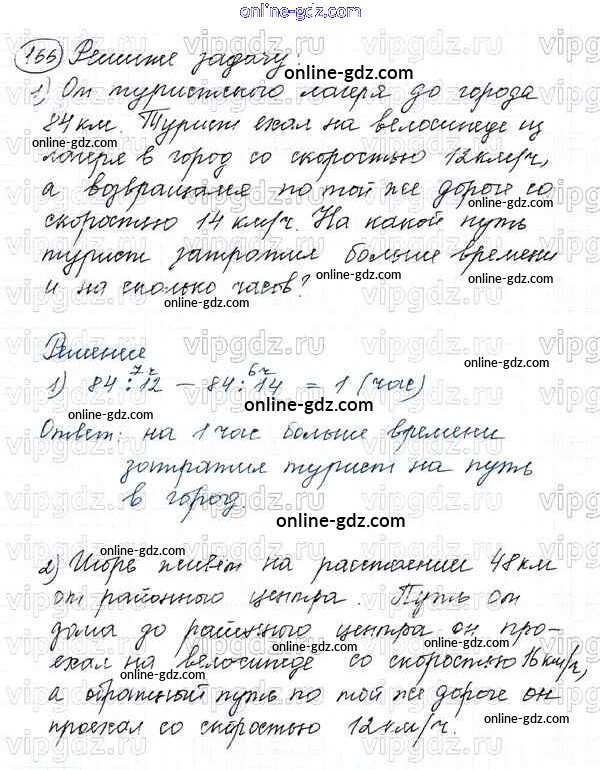 online-gdz.com
166 Решите задачу:
1) От туристского лагеря до города
84 км. Турист ехал на велосипеде из
лагеря в город со скоростью 12 км/ч,
а возвращался по той же дороге со
скоростью 14 км/ч. На какой путь
турист затратил больше времени
и на сколько часов?
Решение
7ч 6ч
1) 84:12 – 84:14 = 1 (час)
Ответ: на 1 час больше времени
затратил турист на путь
в город.
online-gdz.com
2) Игорь живёт на расстоянии 48 км
от районного центра. Путь от
дома до районного центра он про-
ехал на велосипеде со скоростью 16 км/ч,
а обратный путь по той же дороге он
проехал со скоростью 12 км/ч.